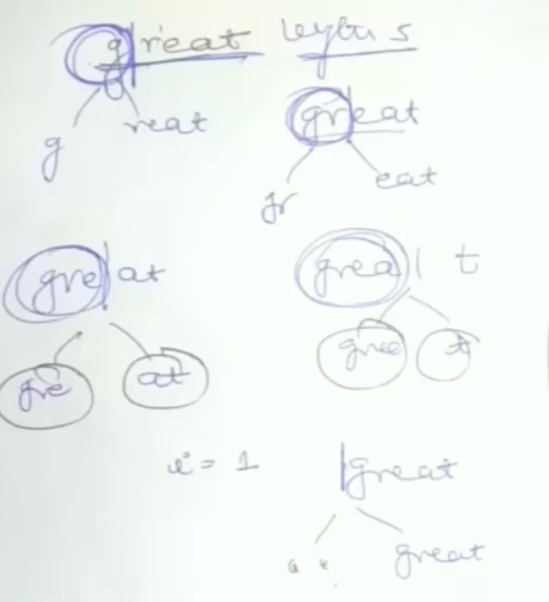 great length 5
g reat
great
gr eat
gre at
grea t
gre at
grea t
i = 1 great
" " great